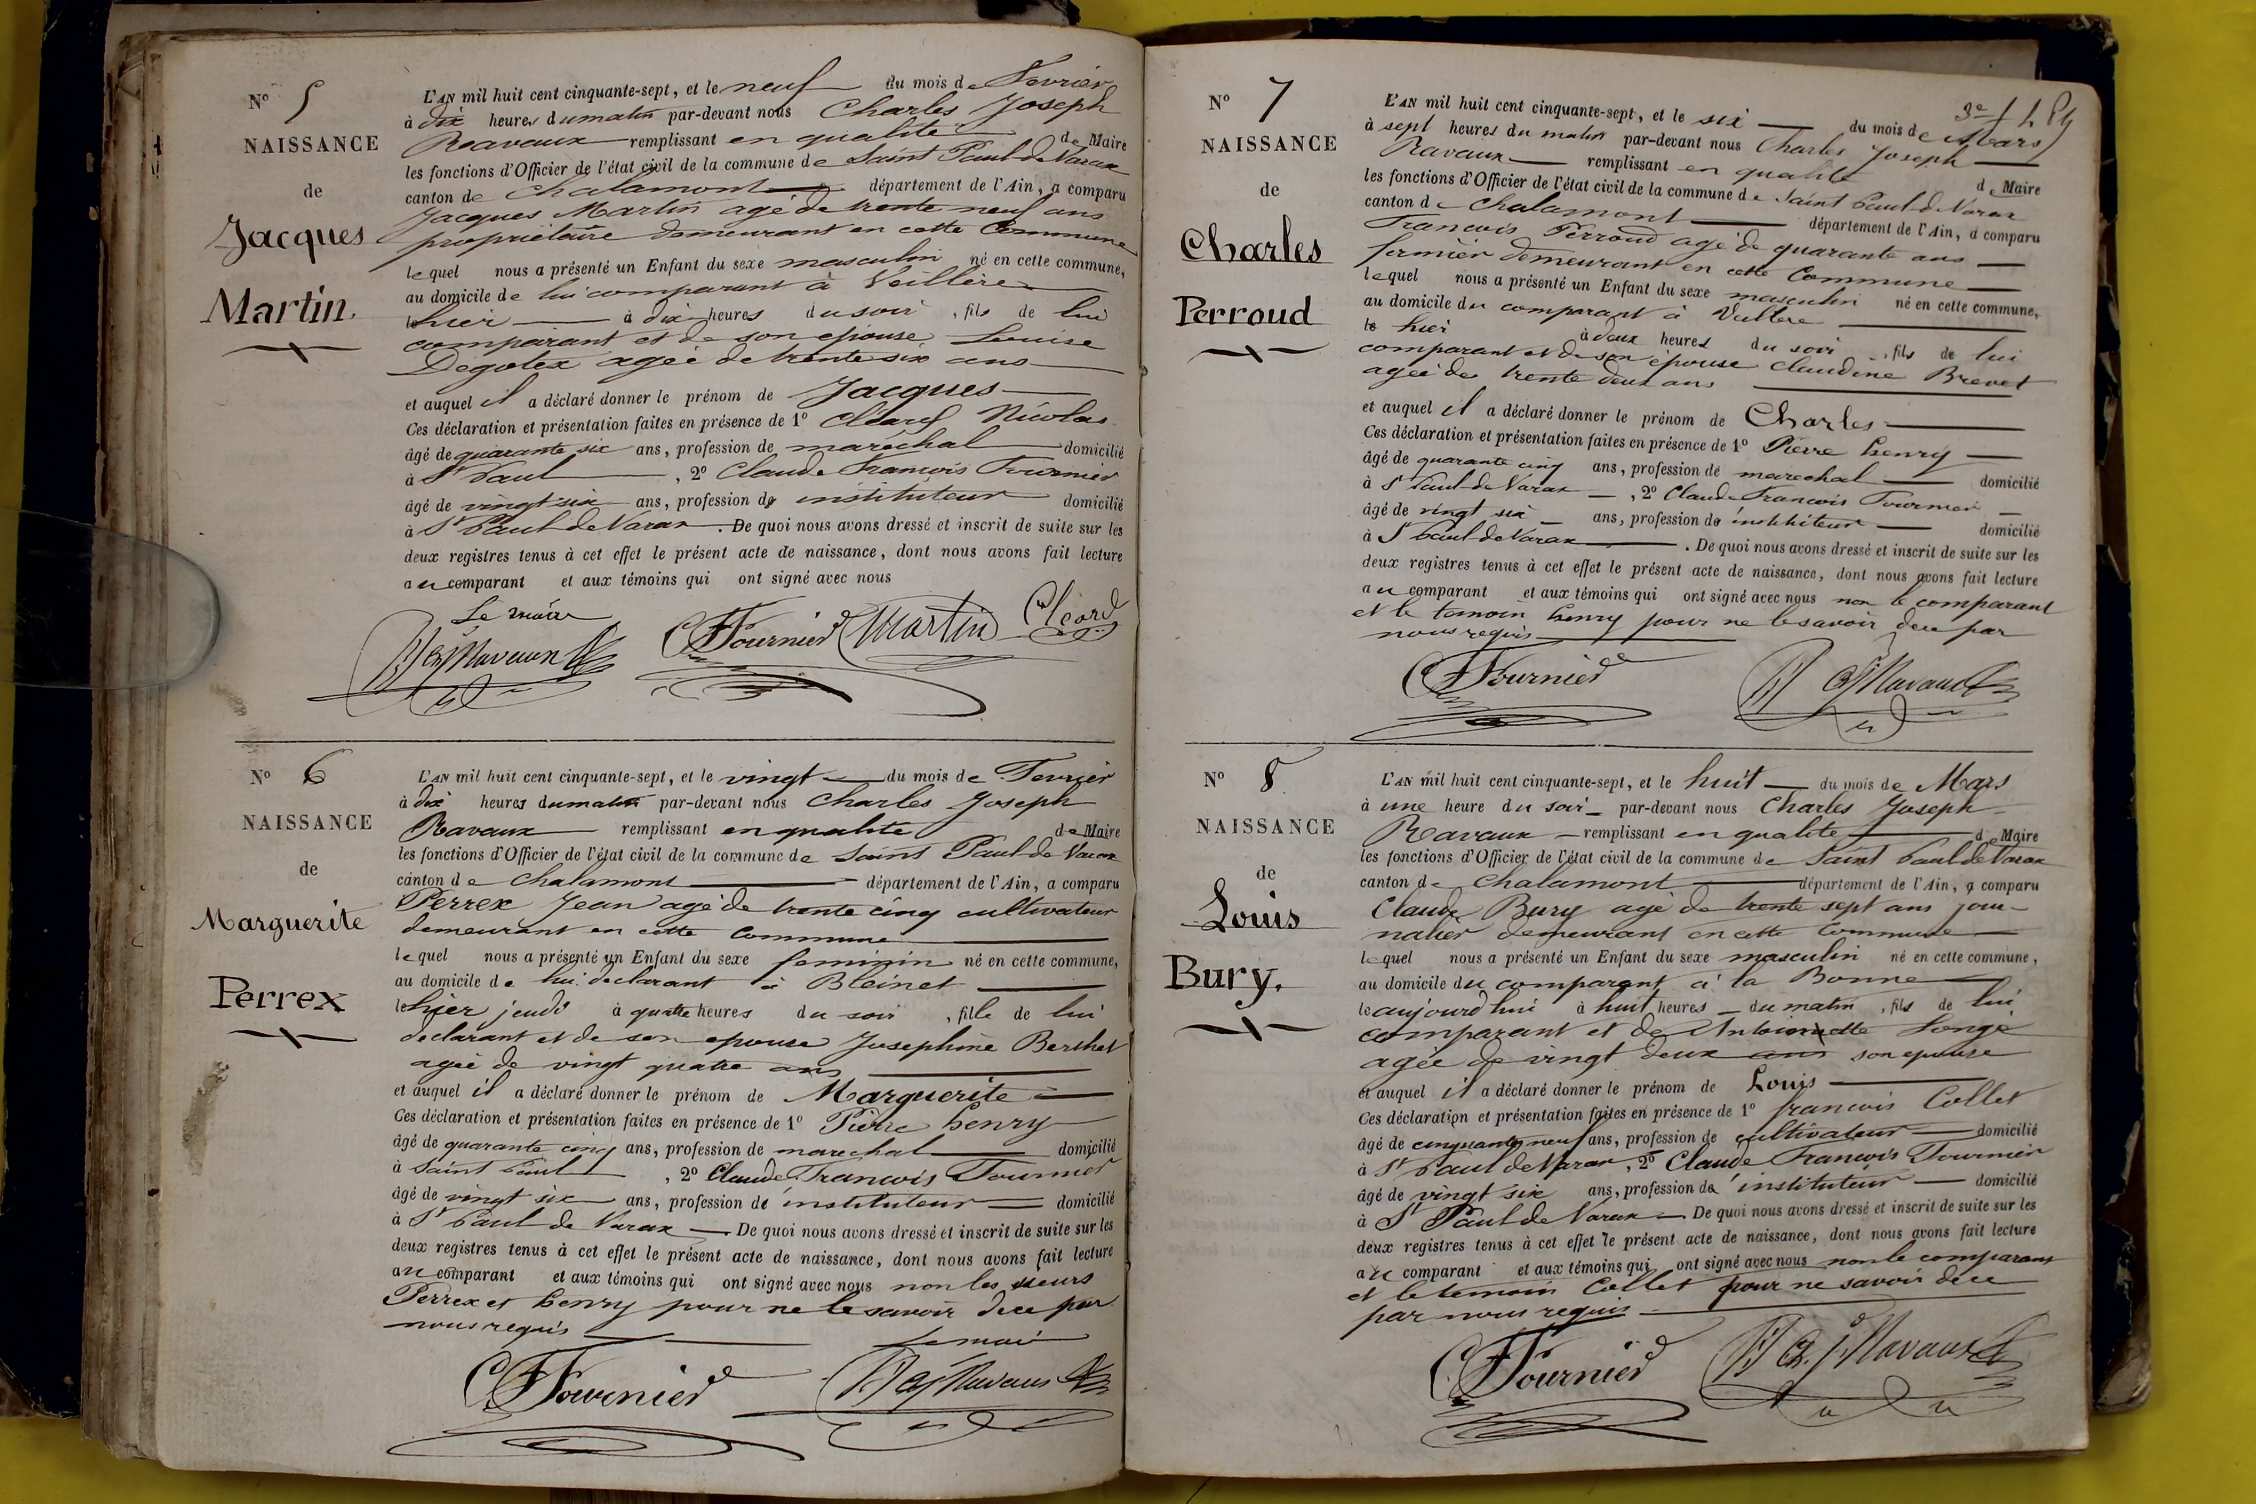 N° 5
NAISSANCE
de
Jacques
Martin.
L'AN mil huit cent cinquante-sept, et le neuf du mois de Fevrier
à dix heures du matin par-devant nous Charles Joseph
Ravaux remplissant en qualité de Maire
les fonctions d'Officier de l'état civil de la commune de Saint Paul de Varax
canton de Chalamont département de l'Ain, a comparu
Jacques Martin agé de trente neuf ans
propriétaire demeurant en cette Commune
lequel nous a présenté un Enfant du sexe masculin né en cette commune,
au domicile de lui comparant à Veillère
le hier à dix heures du soir, fils de lui
comparant et de son épouse Louise
Degotex agée de trente six ans
et auquel il a déclaré donner le prénom de Jacques
Ces déclaration et présentation faites en présence de 1° Cléard Nicolas
âgé de quarante six ans, profession de maréchal domicilié
à St Paul, 2° Claude Francois Fournier
âgé de vingt six ans, profession de instituteur domicilié
à St Paul de Varax. De quoi nous avons dressé et inscrit de suite sur les
deux registres tenus à cet effet le présent acte de naissance, dont nous avons fait lecture
au comparant et aux témoins qui ont signé avec nous
Le maire
Ravaux Fournier Martin Cleard
N° 6
NAISSANCE
de
Marguerite
Perrex
L'AN mil huit cent cinquante-sept, et le vingt du mois de Fevrier
à dix heures du matin par-devant nous Charles Joseph
Ravaux remplissant en qualité de Maire
les fonctions d'Officier de l'état civil de la commune de Saint Paul de Varax
canton de Chalamont département de l'Ain, a comparu
Perrex Jean agé de trente cinq cultivateur
demeurant en cette Commune
lequel nous a présenté un Enfant du sexe feminin né en cette commune,
au domicile de lui declarant à Bleinet
le hier jeudi à quatre heures du soir, fille de lui
declarant et de son epouse Josephine Berthet
agée de vingt quatre ans
et auquel il a déclaré donner le prénom de Marguerite
Ces déclaration et présentation faites en présence de 1° Pierre henry
âgé de quarante cinq ans, profession de marechal domicilié
à Saint Paul, 2° Claude Francois Fournier
âgé de vingt six ans, profession de instituteur domicilié
à St Paul de Varax De quoi nous avons dressé et inscrit de suite sur les
deux registres tenus à cet effet le présent acte de naissance, dont nous avons fait lecture
au comparant et aux témoins qui ont signé avec nous non les sieurs
Perrex et henry pour ne le savoir dece par
nous requis Le mair
Fournier Ravaux
3e f
N° 7
NAISSANCE
de
Charles
Perroud
L'AN mil huit cent cinquante-sept, et le six du mois de Mars
à sept heures du matin par-devant nous Charles Joseph
Ravaux remplissant en qualité de Maire
les fonctions d'Officier de l'état civil de la commune de Saint Paul de Varax
canton de Chalamont département de l'Ain, a comparu
Francois Perroud agé de quarante ans
fermier demeurant en cette Commune
lequel nous a présenté un Enfant du sexe masculin né en cette commune,
au domicile du comparant à Veillere
le hier à deux heures du soir, fils de lui
comparant et de son épouse Claudine Brevet
agée de trente deux ans
et auquel il a déclaré donner le prénom de Charles
Ces déclaration et présentation faites en présence de 1° Pierre henry
âgé de quarante cinq ans, profession de marechal domicilié
à St Paul de Varax, 2° Claude Francois Fournier
âgé de vingt six ans, profession de instituteur domicilié
à St Paul de Varax. De quoi nous avons dressé et inscrit de suite sur les
deux registres tenus à cet effet le présent acte de naissance, dont nous avons fait lecture
au comparant et aux témoins qui ont signé avec nous non le comparant
et le temoin henry pour ne le savoir dece par
nous requis
Fournier Ravaux
N° 8
NAISSANCE
de
Louis
Bury.
L'AN mil huit cent cinquante-sept, et le huit du mois de Mars
à une heure du soir par-devant nous Charles Joseph
Ravaux remplissant en qualité de Maire
les fonctions d'Officier de l'état civil de la commune de Saint Paul de Varax
canton de Chalamont département de l'Ain, a comparu
Claude Bury agé de trente sept ans jour-
nalier demeurant en cette Commune
lequel nous a présenté un Enfant du sexe masculin né en cette commune,
au domicile du comparant à la Bonne
le aujourd'hui à huit heures du matin, fils de lui
comparant et de Antoinette Longe
agée de vingt deux ans son epouse
et auquel il a déclaré donner le prénom de Louis
Ces déclaration et présentation faites en présence de 1° francois Collet
âgé de cinquante neuf ans, profession de cultivateur domicilié
à St Paul de Varax, 2° Claude Francois Fournier
âgé de vingt six ans, profession de instituteur domicilié
à St Paul de Varax De quoi nous avons dressé et inscrit de suite sur les
deux registres tenus à cet effet le présent acte de naissance, dont nous avons fait lecture
au comparant et aux témoins qui ont signé avec nous non le comparant
et le temoin Collet pour ne savoir dece
par nous requis
Fournier Ravaux